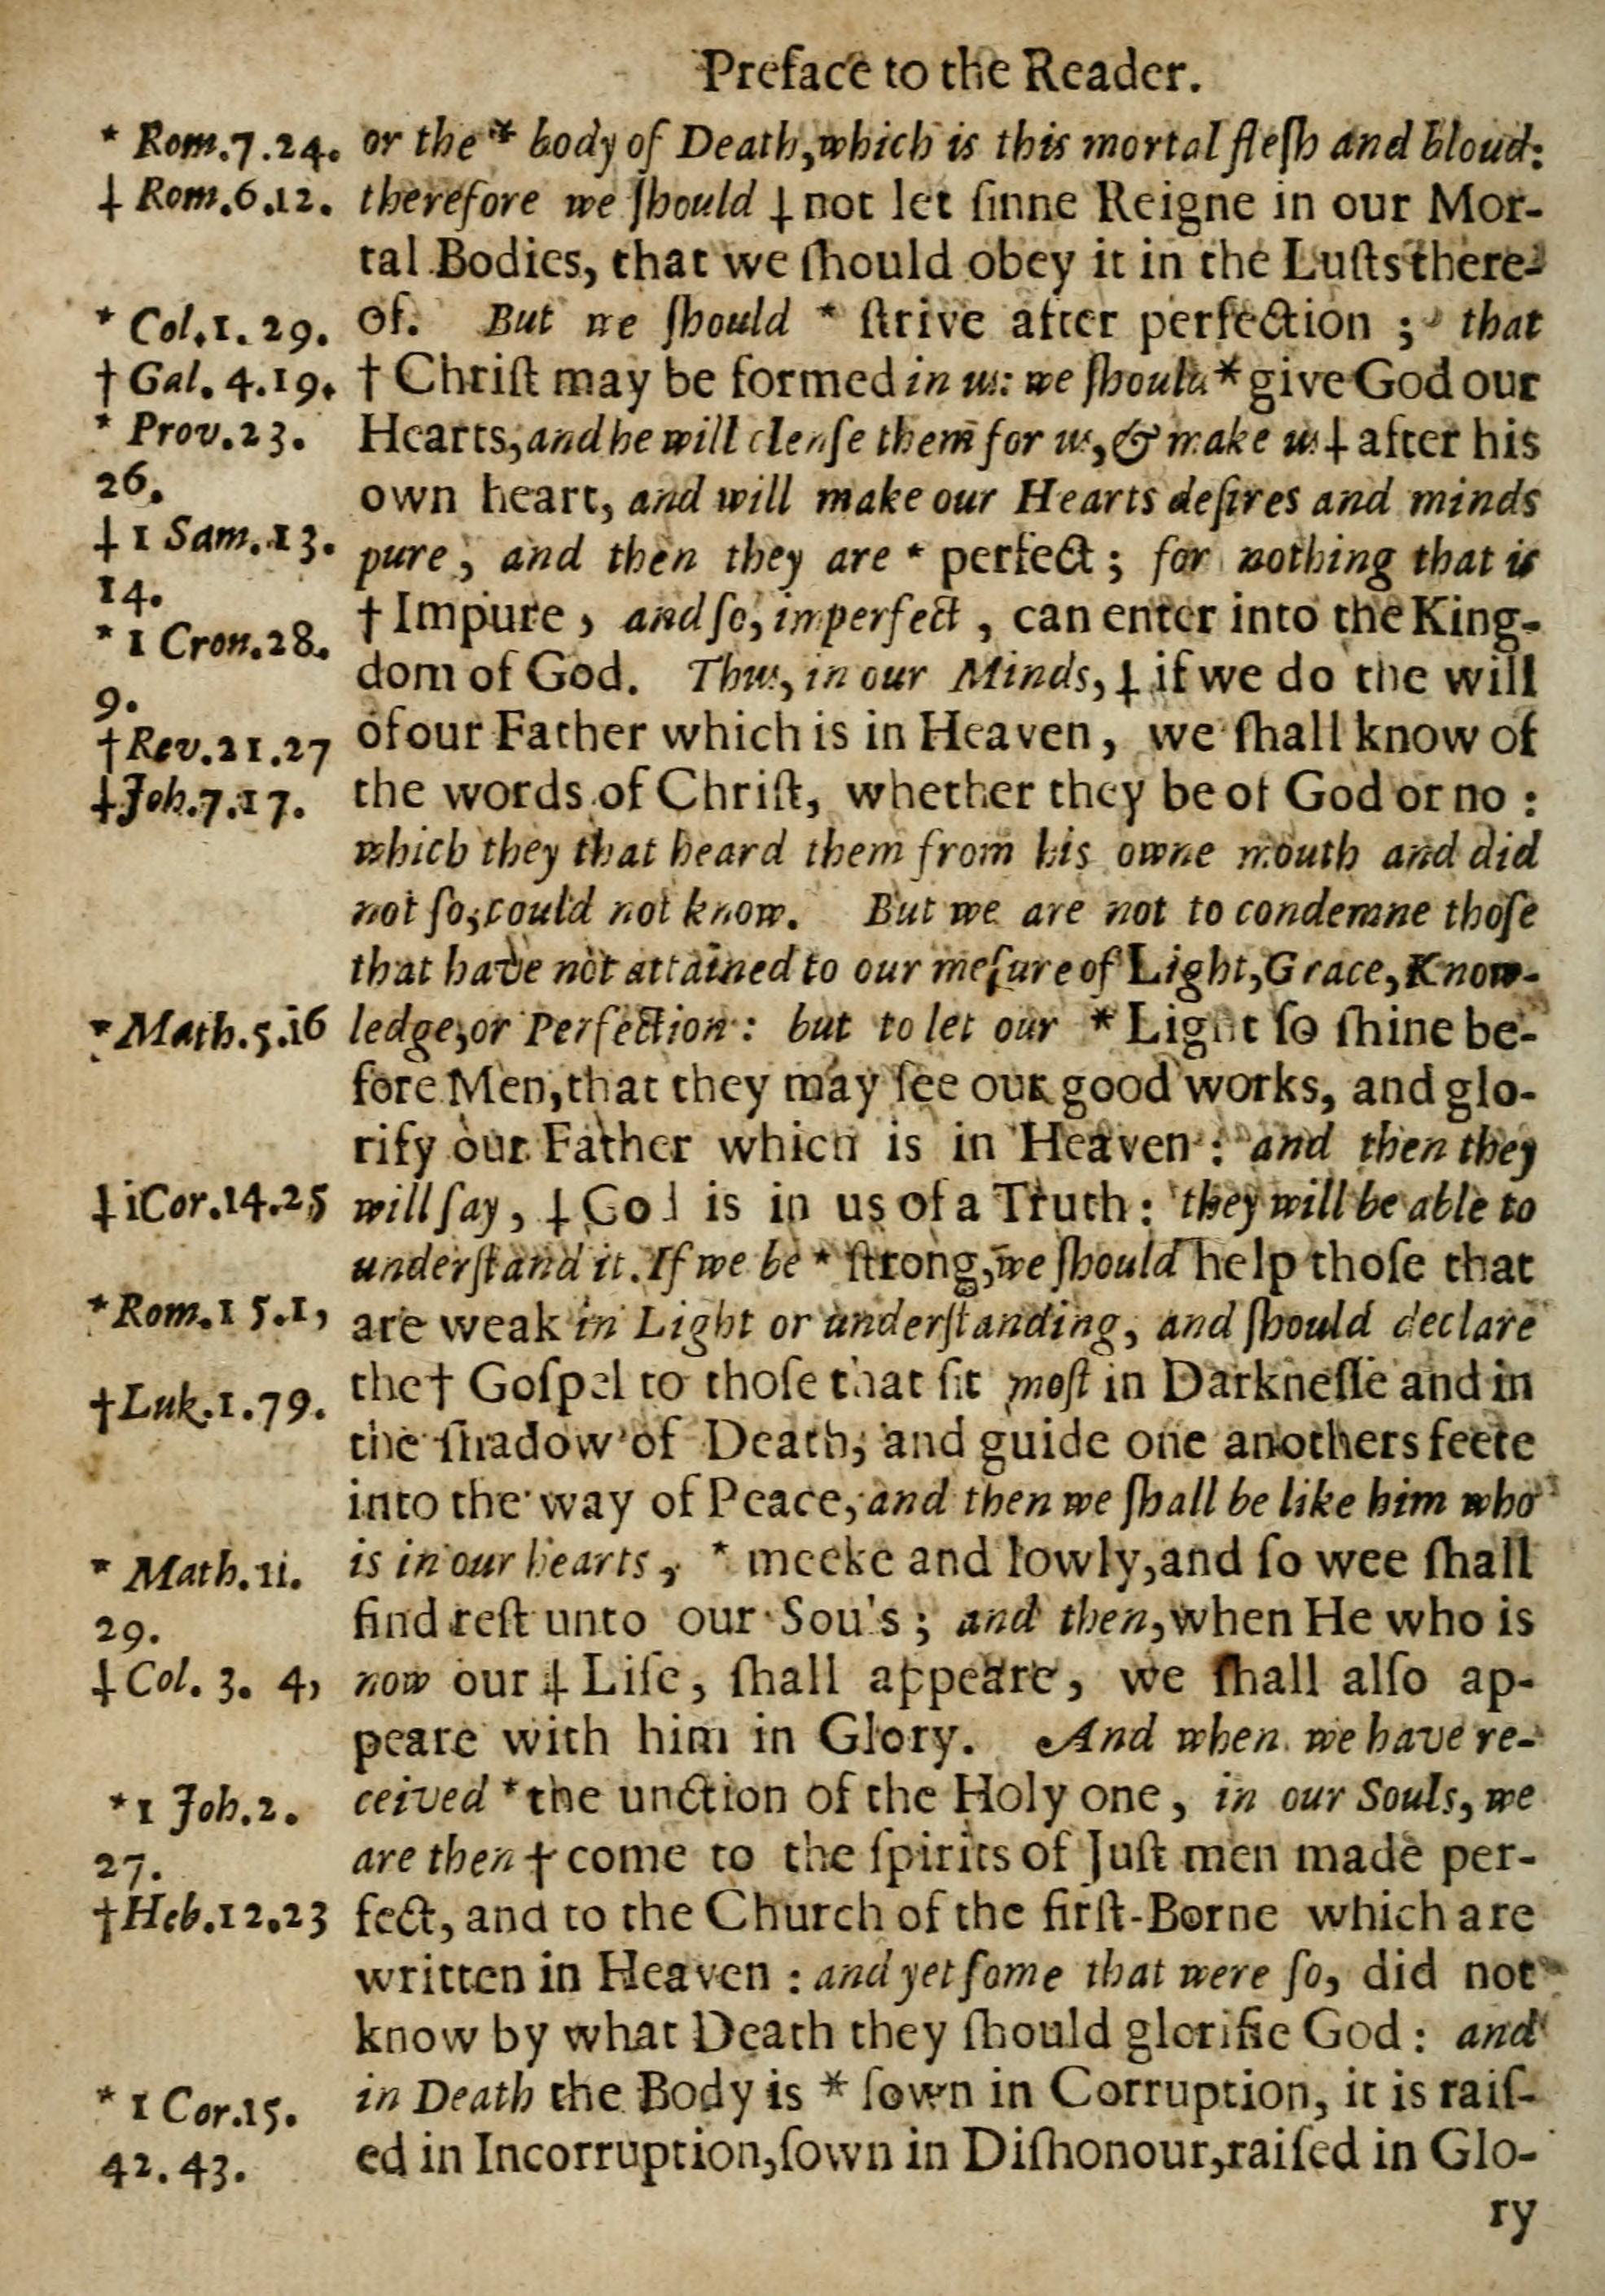 Preface to the Reader.
* Rom.7.24. or the * body of Death,which is this mortal fleſh and bloud:
‡ Rom.6.12. therefore we ſhould ‡ not let ſinne Reigne in our Mor-
tal Bodies, that we ſhould obey it in the Luſts there-
* Col.1.29. of. But we ſhould * ſtrive after perfection ; that
† Gal. 4.19. † Chriſt may be formed in us: we ſhould * give God our
* Prov.23. Hearts,and he will clenſe them for us,& make us ‡ after his
26. own heart, and will make our Hearts deſires and minds
‡ 1 Sam.13. pure, and then they are * perfect ; for nothing that is
14. † Impure , and ſo, imperfect , can enter into the King-
* 1 Cron.28. dom of God. Thus, in our Minds, ‡ if we do the will
9. of our Father which is in Heaven, we ſhall know of
†Rev.21.27 the words of Chriſt, whether they be of God or no :
‡Joh.7.17. which they that heard them from his owne mouth and did
not ſo,could not know. But we are not to condemne thoſe
that have not attained to our meſure of Light,Grace,Know-
*Math.5.16 ledge,or Perfection : but to let our * Light ſo ſhine be-
fore Men,that they may ſee our good works, and glo-
rify our Father which is in Heaven : and then they
‡1Cor.14.25 will ſay, ‡ God is in us of a Truth : they will be able to
underſtand it. If we be * ſtrong,we ſhould help thoſe that
*Rom.15.1, are weak in Light or underſtanding, and ſhould declare
†Luk.1.79. the † Goſpel to thoſe that ſit moſt in Darkneſſe and in
the ſhadow of Death, and guide one anothers feete
into the way of Peace, and then we ſhall be like him who
* Math.11. is in our hearts, * meeke and lowly,and ſo wee ſhall
29. find reſt unto our Sou's ; and then,when He who is
‡ Col. 3. 4, now our ‡ Life, ſhall appeare, we ſhall alſo ap-
peare with him in Glory. And when we have re-
*1 Joh.2. ceived * the unction of the Holy one, in our Souls, we
27. are then † come to the ſpirits of Juſt men made per-
†Heb.12.23 fect, and to the Church of the firſt-Borne which are
written in Heaven : and yet ſome that were ſo, did not
know by what Death they ſhould glorifie God : and
* 1 Cor.15. in Death the Body is * ſown in Corruption, it is raiſ-
42.43. ed in Incorruption,ſown in Diſhonour,raiſed in Glo-
ry